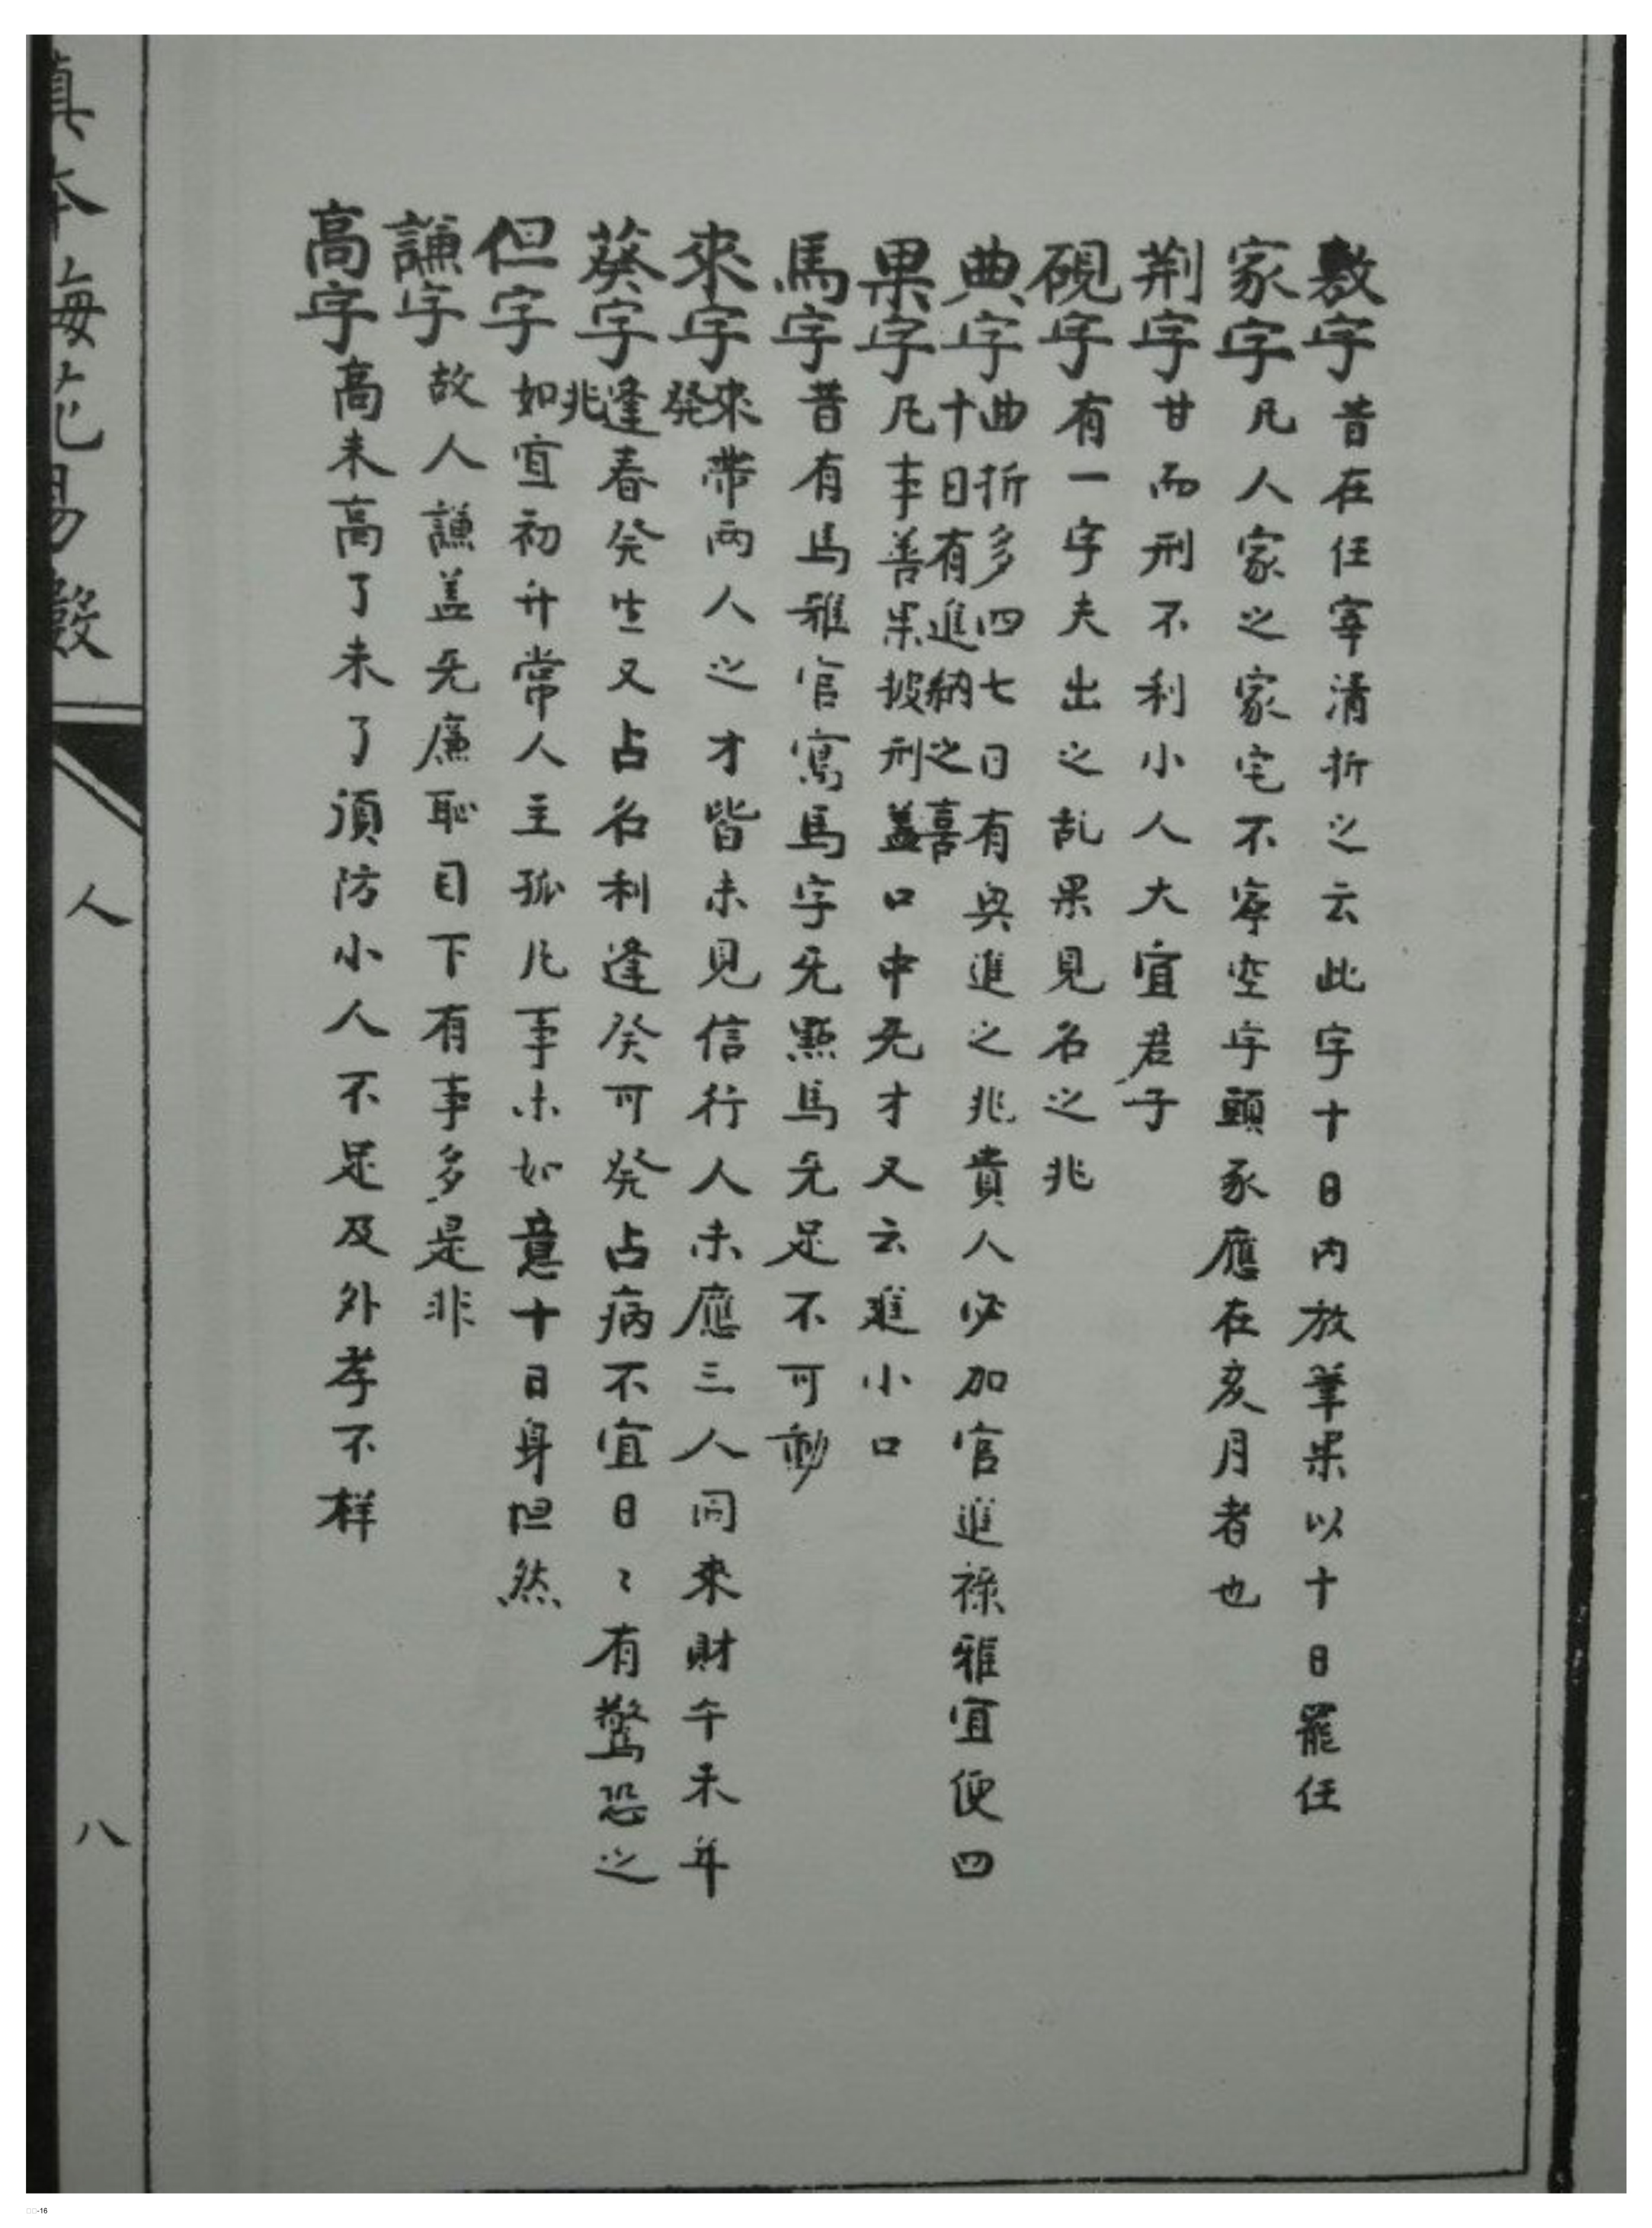 敷字昔在任宰清折之云此字十日内放筆果以十日罷任
家字凡人家之家宅不寧空字頭豕應在亥月者也
荆字甘而刑不利小人大宜君子
硯字有一字夫出之乱果見名之兆
典字曲折多四七日有與進之兆貴人必加官進祿雅宜便四
十日有進納之喜
果字凡事善果披刑盖口中无才又云進小口
馬字昔有馬雅官寫馬字无點馬无足不可動
來字來帶两人之才皆未見信行人未應三人同來財午未年
発
葵字逢春癸生又占名利逢癸可発占病不宜日〻有驚恐之
兆
但字如宜初升常人主孤凡事未如意十日身怛然
謙字故人謙盖无廉恥目下有事多是非
高字高未高了未了須防小人不足及外孝不样
真本梅花易數
人
八
-16